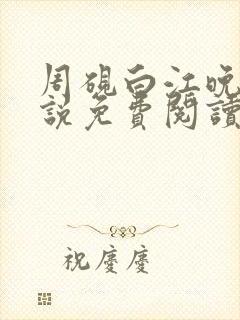 周硯白江晚
說免費閱讀
祝慶慶